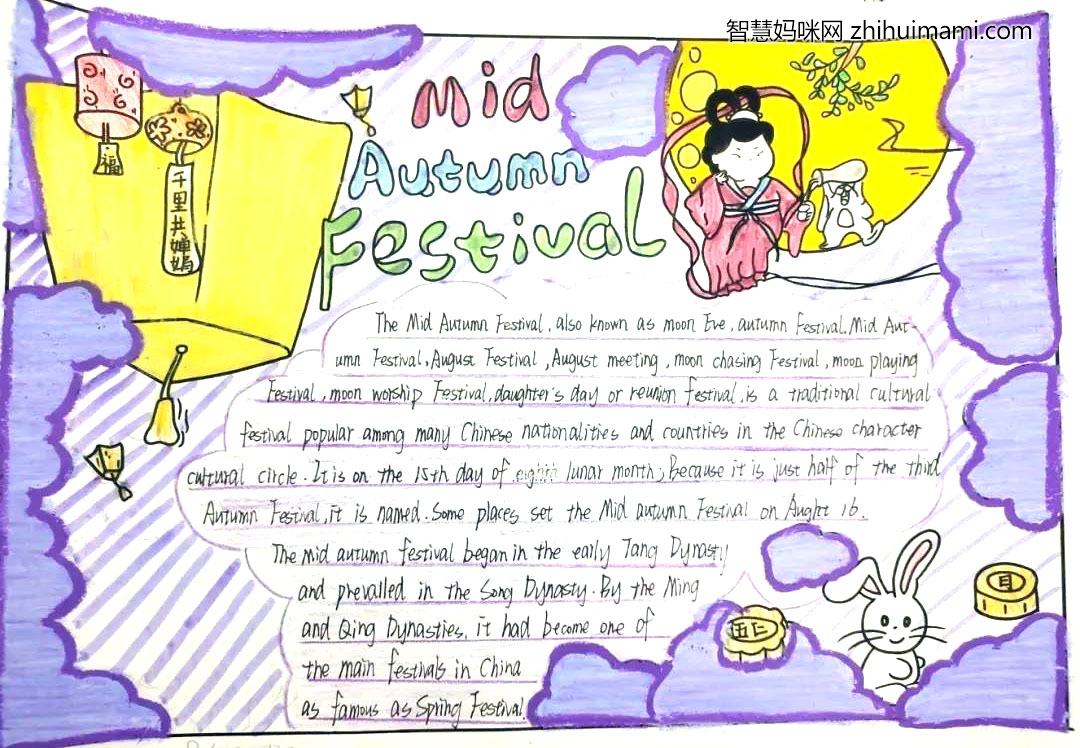 智慧妈咪网 zhihuimami.com
Mid
Autumn
Festival
福
千里共婵娟
The Mid Autumn Festival, also known as moon Eve, autumn Festival, Mid Aut-
umn Festival, August Festival, August meeting, moon chasing Festival, moon playing
Festival, moon worship Festival, daughter's day or reunion festival, is a traditional cultural
festival popular among many Chinese nationalities and countries in the Chinese character
cultural circle. It is on the 15th day of eighth lunar month; Because it is just half of the third
Autumn Festival, it is named. Some places set the Mid autumn Festival on Aught 16.
The mid autumn festival began in the early Tang Dynasty
and prevalled in the Song Dynasty. By the Ming
and Qing Dynasties, it had become one of
the main festivals in China
as famous as Spring Festival.
五仁